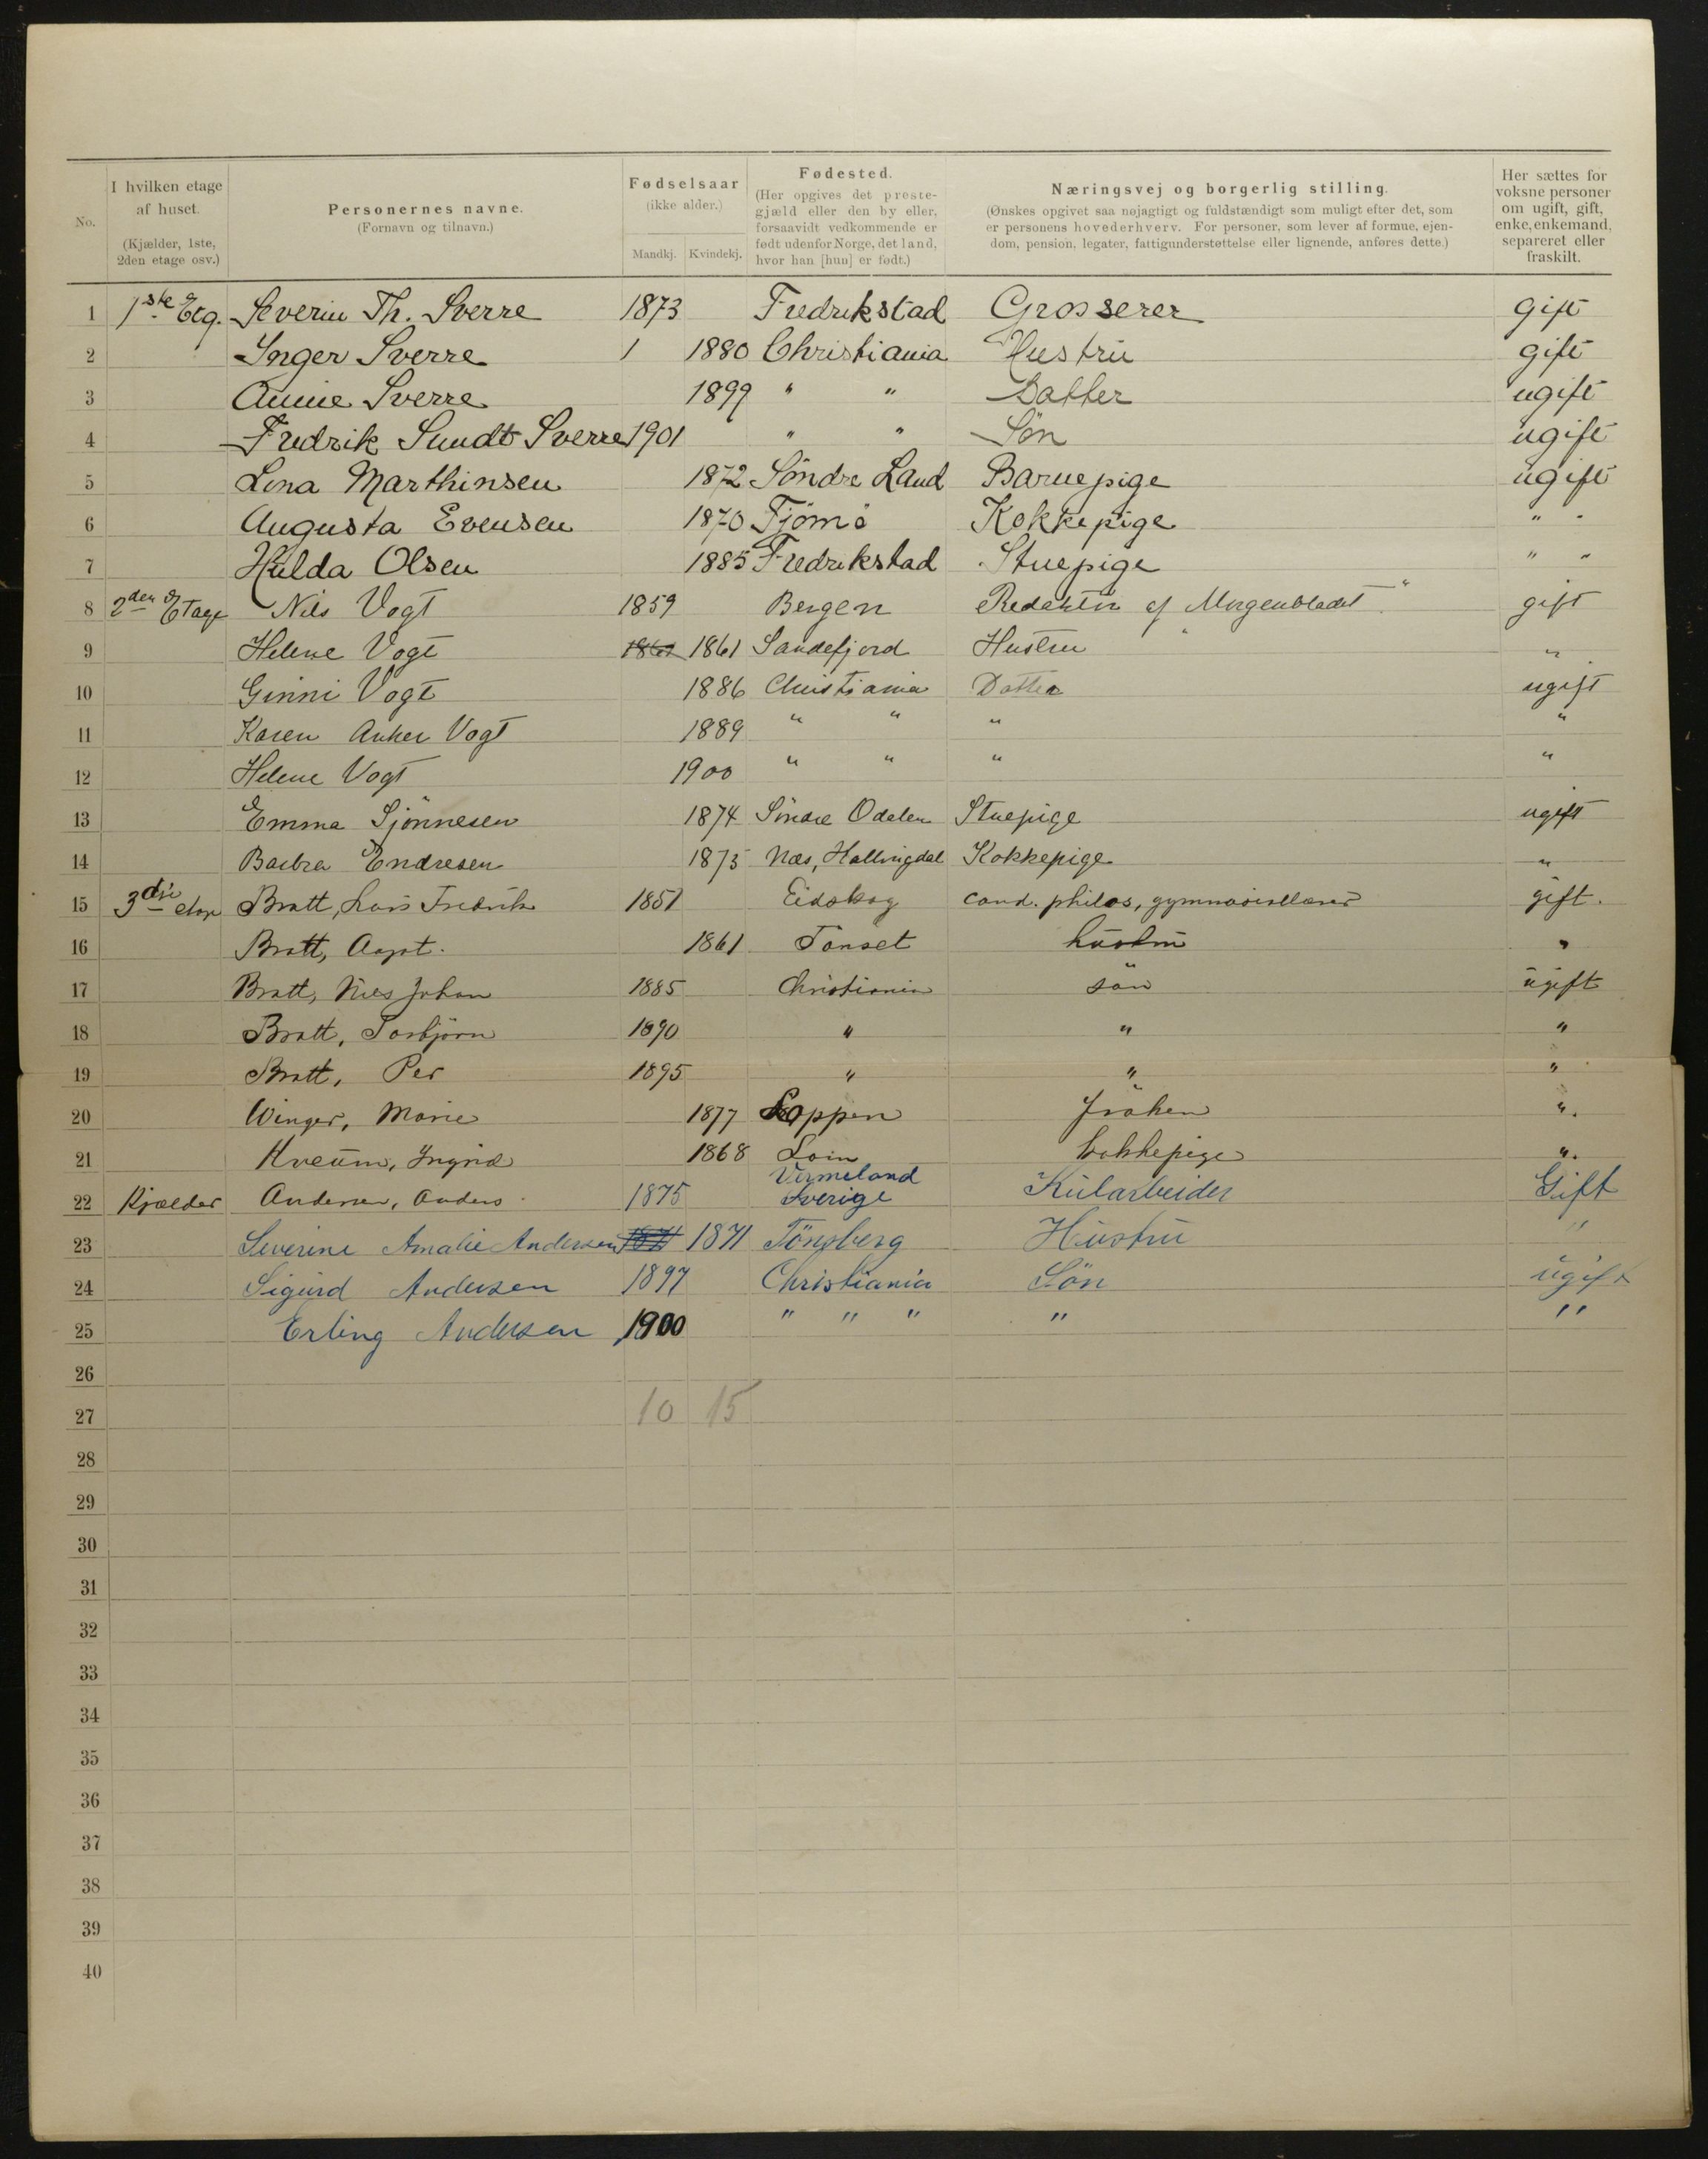 No.
I hvilken etage af huset.
(Kjælder, 1ste, 2den etage osv.)
Personernes navne.
(Fornavn og tilnavn.)
Fødselsaar
(ikke alder.)
Mandkj. Kvindekj.
Fødested.
(Her opgives det prestegjæld eller den by eller, forsaavidt vedkommende er født udenfor Norge, det land, hvor han [hun] er født.)
Næringsvej og borgerlig stilling.
(Ønskes opgivet saa nøjagtigt og fuldstændigt som muligt efter det, som er personens hovederhverv. For personer, som lever af formue, ejendom, pension, legater, fattigunderstøttelse eller lignende, anføres dette.)
Her sættes for voksne personer om ugift, gift, enke, enkemand, separeret eller fraskilt.
1 1ste Etg. Severin Th. Sverre 1873 Fredrikstad Grosserer gift
2 Inger Sverre 1 1880 Christiania Hustru gift
3 Annie Sverre 1899 " " Datter ugift
4 Fredrik Sundt Sverre 1901 " " Søn ugift
5 Lena Marthinsen 1872 Söndre Land Barnepige ugift
6 Augusta Evensen 1870 Tjömö Kokkepige " "
7 Hulda Olsen 1885 Fredrikstad Stuepige " "
8 2den Etage Nils Vogt 1859 Bergen Redaktör af Morgenbladet" gift
9 Helene Vogt 1861 1861 Sandefjord Hustru "
10 Ginni Vogt 1886 Christiania Datter ugift
11 Karen Anker Vogt 1889 " " " "
12 Helene Vogt 1900 " " " "
13 Emma Sjönnesen 1874 Söndre Odalen Stuepige ugift
14 Barbra Endresen 1875 Næs, Hallingdal Kokkepige "
15 3die etage Bratt, Lars Fredrik 1851 Eidskog cand. philos, gymnasiellærer gift.
16 Bratt, Aagot. 1861 Tönset hustru "
17 Bratt, Nils Johan 1885 Christiania sön ugift
18 Bratt, Torbjörn 1890 " " "
19 Bratt, Per 1895 " " "
20 Winger, Marie 1877 Loppen fröken ".
21 Kveum, Ingrid 1868 Lom kokkepige ".
22 Kjælder Andersen, Anders 1875 Vermeland Sverige Kularbeider Gift
23 Severine Amalie Andersen 1871 1871 Tönsberg Hustru "
24 Sigurd Andersen 1897 Christiania Sön ugift
25 Erling Andersen 1900 " " " " "
26
27 10 15
28
29
30
31
32
33
34
35
36
37
38
39
40